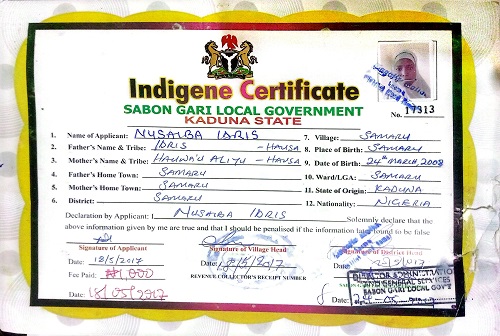 Indigene Certificate
SABON GARI LOCAL GOVERNMENT
KADUNA STATE
No. 17313
1. Name of Applicant: NUSAIBA IDRIS
2. Father's Name & Tribe: IDRIS - HAUSA
3. Mother's Name & Tribe: HAUWA'U ALIYU - HAUSA
4. Father's Home Town: SAMARU
5. Mother's Home Town: SAMARU
6. District: SAMARU
7. Village: SAMARU
8. Place of Birth: SAMARU
9. Date of Birth: 24th MARCH, 2003
10. Ward/LGA: SAMARU
11. State of Origin: KADUNA
12. Nationality: NIGERIA
Declaration by Applicant: I NUSAIBA IDRIS Solemnly declare that the
above information given by me are true and that I should be penalised if the information later found to be false
Signature of Applicant
Date: 18/5/2017
Fee Paid: ₦1,000
18/05/2017
Signature of Village Head
Date: 18/5/2017
REVENUE COLLECTORS RECEIPT NUMBER
Signature of District Head
Date:
DIRECTOR ADMINISTRATION
AND GENERAL SERVICES
SABON GARI LOCAL GOVT
Date: